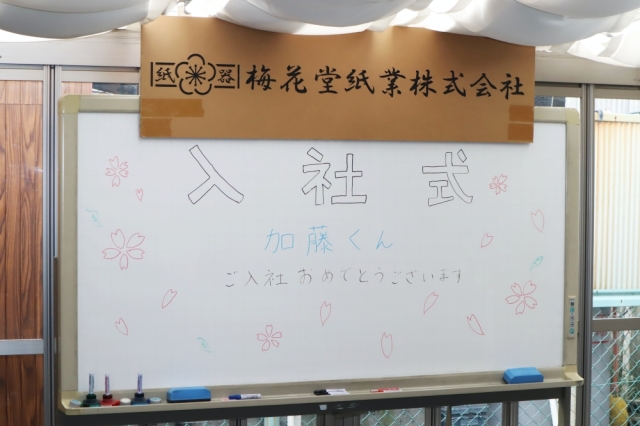 紙器 梅花堂紙業株式会社
入社式
加藤くん
ご入社おめでとうございます